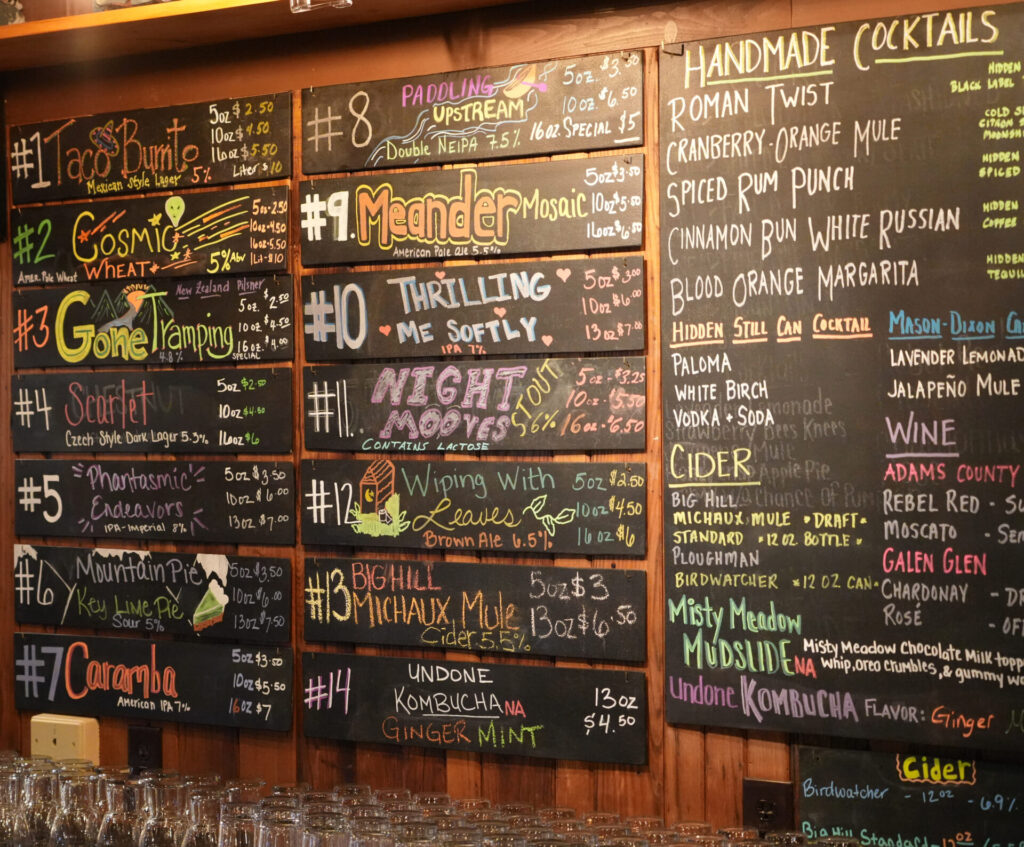 #1 Taco Burrito
Mexican Style Lager 5%
5oz $2.50
10oz $4.50
16oz $5.50
Liter $10
#2 Cosmic
Wheat
Amer. Pale Wheat
5% ABV
5oz-2.50
10oz-4.50
16oz-5.50
Lit-$10
#3 Gone Tramping
New Zealand Pilsner
4.8%
5oz. $2.50
10oz. $4.50
16oz. $4.00
SPECIAL
#4 Scarlet
Czech Style Dark Lager 5.3%
5oz $2.50
10oz $4.50
16oz $6
#5 "Phantasmic
Endeavors"
IPA-Imperial 8%
5oz $3.50
10oz $6.00
13oz $7.00
#6 Mountain Pie
Key Lime Pie
Sour 5%
5oz $3.50
10oz $6.00
13oz $7.50
#7 Caramba
American IPA 7%
5oz $3.50
10oz $5.50
16oz $7
#8 PADDLING
UPSTREAM
Double NEIPA 7.5%
5oz. $3.50
10oz. $6.50
16oz. SPECIAL $5
#9. Meander Mosaic
American Pale Ale 5.5%
5oz $3.50
10oz $5.50
16oz $6.50
#10 THRILLING
ME SOFTLY
IPA 7%
5oz $3.00
10oz $6.00
13oz $7.00
#11. NIGHT
MOOVES
STOUT
5.6%
CONTAINS LACTOSE
5oz - $3.25
10oz - $5.50
16oz - $6.50
#12 Wiping With
Leaves
Brown Ale 6.5%
5oz $2.50
10oz $4.50
16oz $6
#13 BIG HILL
MICHAUX MULE
Cider 5.5%
5oz $3
13oz $6.50
#14 UNDONE
KOMBUCHA NA
GINGER MINT
13oz
$4.50
HANDMADE COCKTAILS
ROMAN TWIST
CRANBERRY-ORANGE MULE
SPICED RUM PUNCH
CINNAMON BUN WHITE RUSSIAN
BLOOD ORANGE MARGARITA
HIDDEN
BLACK LABEL
COLD
CITRON
MOONSH
HIDDEN
SPICED
HIDDEN
COFFEE
HIDDEN
TEQUIL
HIDDEN STILL CAN COCKTAIL
PALOMA
WHITE BIRCH
VODKA + SODA
MASON-DIXON CA
LAVENDER LEMONAD
JALAPEÑO MULE
CIDER
BIG HILL
MICHAUX MULE *DRAFT*
STANDARD *12 OZ BOTTLE*
PLOUGHMAN
BIRDWATCHER *12 OZ CAN*
WINE
ADAMS COUNTY
REBEL RED -
MOSCATO -
GALEN GLEN
CHARDONAY -
ROSÉ -
MISTY MEADOW
MUDSLIDE NA
MISTY MEADOW CHOCOLATE MILK TOPP
WHIP, OREO CRUMBLES, & GUMMY WO
UNDONE KOMBUCHA FLAVOR: GINGER
Cider
Birdwatcher - 12oz - 6.9%
Big Hill Standard - 12oz